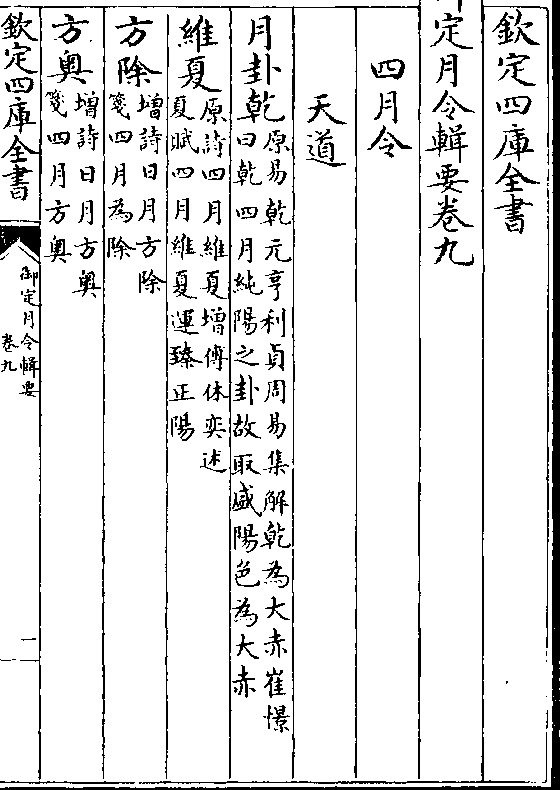 欽定四庫全書
定月令輯要卷九
四月令
天道
月卦乾原易乾元亨利貞周易集解乾為大赤崔憬
曰乾四月純陽之卦故取盛陽色為大赤
維夏原詩四月維夏增傅休奕述
夏賦四月維夏運臻正陽
方除增詩日月方除
箋四月為除
方奧增詩日月方奧
箋四月方奧
欽定四庫全書
御定月令輯要
卷九
一